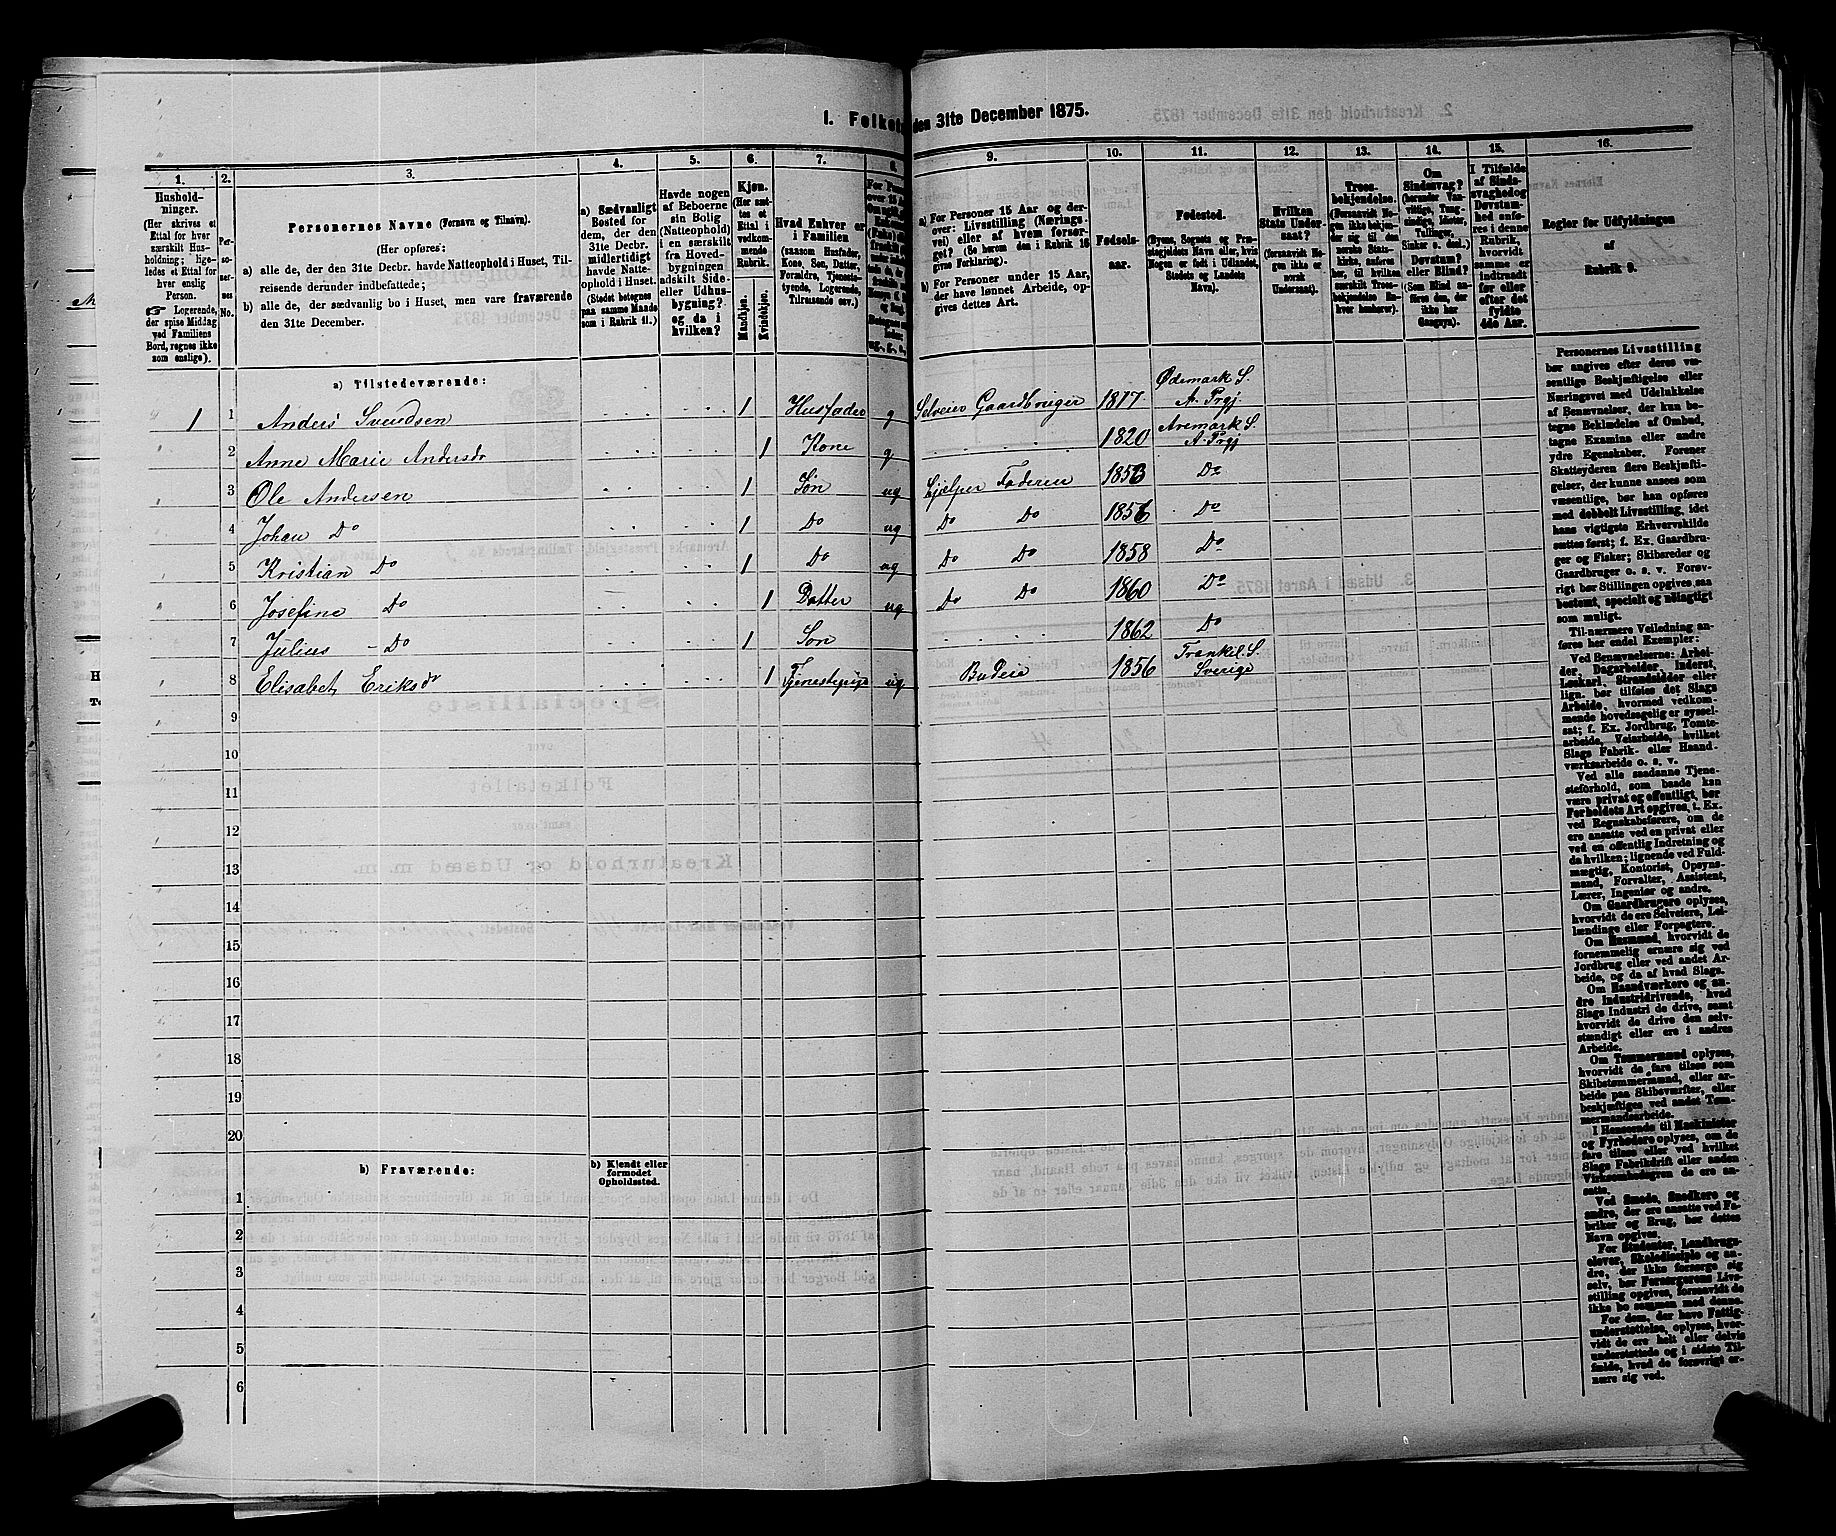 1. Folketal den 31te December 1875.
1.
2.
3.
4.
5.
6.
7.
8.
9.
10.
11.
12.
13.
14.
15.
16.
Husholdninger.
(Her skrives et Ettal for hver særskilt Husholdning; ligeledes et Ettal for hver enslig Person.
☞ Logerende, der spise Middag ved Familiens Bord, regnes ikke som enslige).
Personernes No.
Personernes Navne (Fornavn og Tilnavn).
(Her opføres:
a) alle de, der den 31te Decbr. havde Natteophold i Huset, Tilreisende derunder indbefattede;
b) alle de, der sædvanlig bo i Huset, men vare fraværende den 31te December.
a) Sædvanligt Bosted for dem, der den 31te Decbr. midlertidigt havde Natteophold i Huset.
(Stedet betegnes paa samme Maade som i Rubrik 11.)
Havde nogen af Beboerne sin Bolig (Natteophold) i en særskilt fra Hovedbygningen adskilt Side- eller Udhusbygning? og da i hvilken?
Kjøn.
(Her sættes et Ettal i vedkommende Rubrik.
Mandkjøn.
Kvindekjøn.
Hvad Enhver er i Familien
(saasom Husfader, Kone, Søn, Datter, Forældre, Tjenestetyende, Logerende, Tilreisende osv.)
a) For Personer 15 Aar og derover: Livsstilling (Næringsvei) eller af hvem forsørget? (Se herom den i Rubrik 16 givne Forklaring).
b) For Personer under 15 Aar, der have lønnet Arbeide, opgives dettes Art.
Fødselsaar.
Fødested.
(Byens, Sognets og Præstegjeldets Navn eller, hvis Nogen er født i Udlandet, Stedets og Landets Navn).
Hvilken Stats Undersaat?
(forsaavidt Nogen ikke er norsk Undersaat).
Troesbekjendelse.
(Forsaavidt Nogen ikke bekjender sig til den norske Statskirke, anføres her, til hvilken særskilt Troesbekjendelse Enhver henhører).
Om Sindssvag?
Døvstum? eller Blind?
(Som Blind anføres den, der ikke har Gangsyn).
I Tilfælde af Sindssvaghed og Døvstumhed anføres i denne Rubrik, hvorvidt samme er indtraadt før eller efter det fyldte 4de Aar.
Regler for Udfyldningen af Rubrik 9.
a) Tilstedeværende:
1 1 Anders Svendsen 1 Husfader g Selveier Gaardbruger 1817 Ødemark S. A. Prgj
2 Anne Marie Andersdr 1 Kone g 1820 Aremark S. A. Prgj
3 Ole Andersen 1 Søn ug hjælper Faderen 1853 Do
4 Johan Do 1 Do ug Do Do 1856 Do
5 Kristian Do 1 Do ug Do Do 1858 Do
6 Josefine Do 1 Datter ug Do Do 1860 Do
7 Julius - Do 1 Søn 1862 Do
8 Elisabet Eriksdr 1 Tjenestepige ug Budeie 1856 Trankil. S. Sverige
9
10
11
12
13
14
15
16
17
18
19
20
b) Fraværende:
b) Kjendt eller formodet Opholdssted.
1
2
3
4
5
6
Personernes Livsstilling
bør angives efter deres væ-
sentlige Beskjæftigelse eller
Næringsvei med Udelukkelse
af Benævnelser, der kun be-
tegne Beklædelse af Ombud,
tagne Examina eller andre
ydre Egenskaber. Forener
Skatteyderen flere Beskjæfti-
gelser, der kunne ansees som
væsentlige, bør han opføres
med dobbelt Livsstilling, idet
hans vigtigste Erhvervskilde
sættes først; f. Ex. Gaardbru-
ger og Fisker; Skibsreder og
Gaardbruger o. s. v. Forøv-
rigt bør Stillingen opgives saa
bestemt, specielt og nøiagtigt
som muligt.
Til nærmere Veiledning an-
føres her endel Exempler:
Ved Benævnelserne: Arbei-
der, Dagarbeider, Inderst,
Løskarl, Strandsidder eller
lign. bør tilføies det Slags
Arbeide, hvormed vedkom-
mende hovedsagelig er syssel-
sat; f. Ex. Jordbrug, Tomte-
arbeide, Veiarbeide, hvilket
Slags Fabrik- eller Haand-
værksarbeide o. s. v.
Ved alle saadanne Tjene-
steforhold, som baade kan
være privat og offentligt, bør
Forholdets Art opgives, f. Ex.
ved Regnskabsførere, om de
ere ansatte ved en privat eller
ved en offentlig Indretning og
da hvilken; lignende ved Fuld-
mægtig, Kontorist, Opsyns-
mand, Forvalter, Assistent,
Lærer, Ingeniør og andre.
Om Gaardbrugere oplyses,
hvorvidt de ere Selveiere, Lei-
lændinge eller Forpagtere.
Om Husmænd, hvorvidt de
fornemmelig ernære sig ved
Jordbrug eller ved andet Ar-
beide, og da af hvad Slags.
Om Haandværkere og an-
dre Industridrivende, hvad
Slags Industri de drive, samt
hvorvidt de drive den selv-
stændigt eller ere i andres
Arbeide.
Om Tømmermænd oplyses,
hvorvidt de fare tilsøs som
Skibstømmermænd, eller ar-
beide paa Skibsværfter, eller
beskjæftiges ved andet Tøm-
mermandsarbeide.
I Henseende til Maskinister
og Fyrbødere oplyses, om de
fare tilsøs eller ved hvilket
Slags Fabrikdrift eller anden
Virksomhed de ere an-
satte.
Ved Smede, Snedkere og
andre, der ere ansatte ved Fa-
briker og Brug, bør dettes
Navn opgives.
For Studenter, Landbrugs-
elever, Skoledisciple og an-
dre, der ikke forsørge sig
selv, bør Forsørgerens Livs-
stilling opgives, forsaavidt de
ikke bo sammen med denne.
For dem, der have Fattig-
understøttelse, oplyses, hvor-
vidt de ere helt eller delvis
understøttede og i sidste Til-
fælde, hvad de forøvrigt er-
nære sig ved.